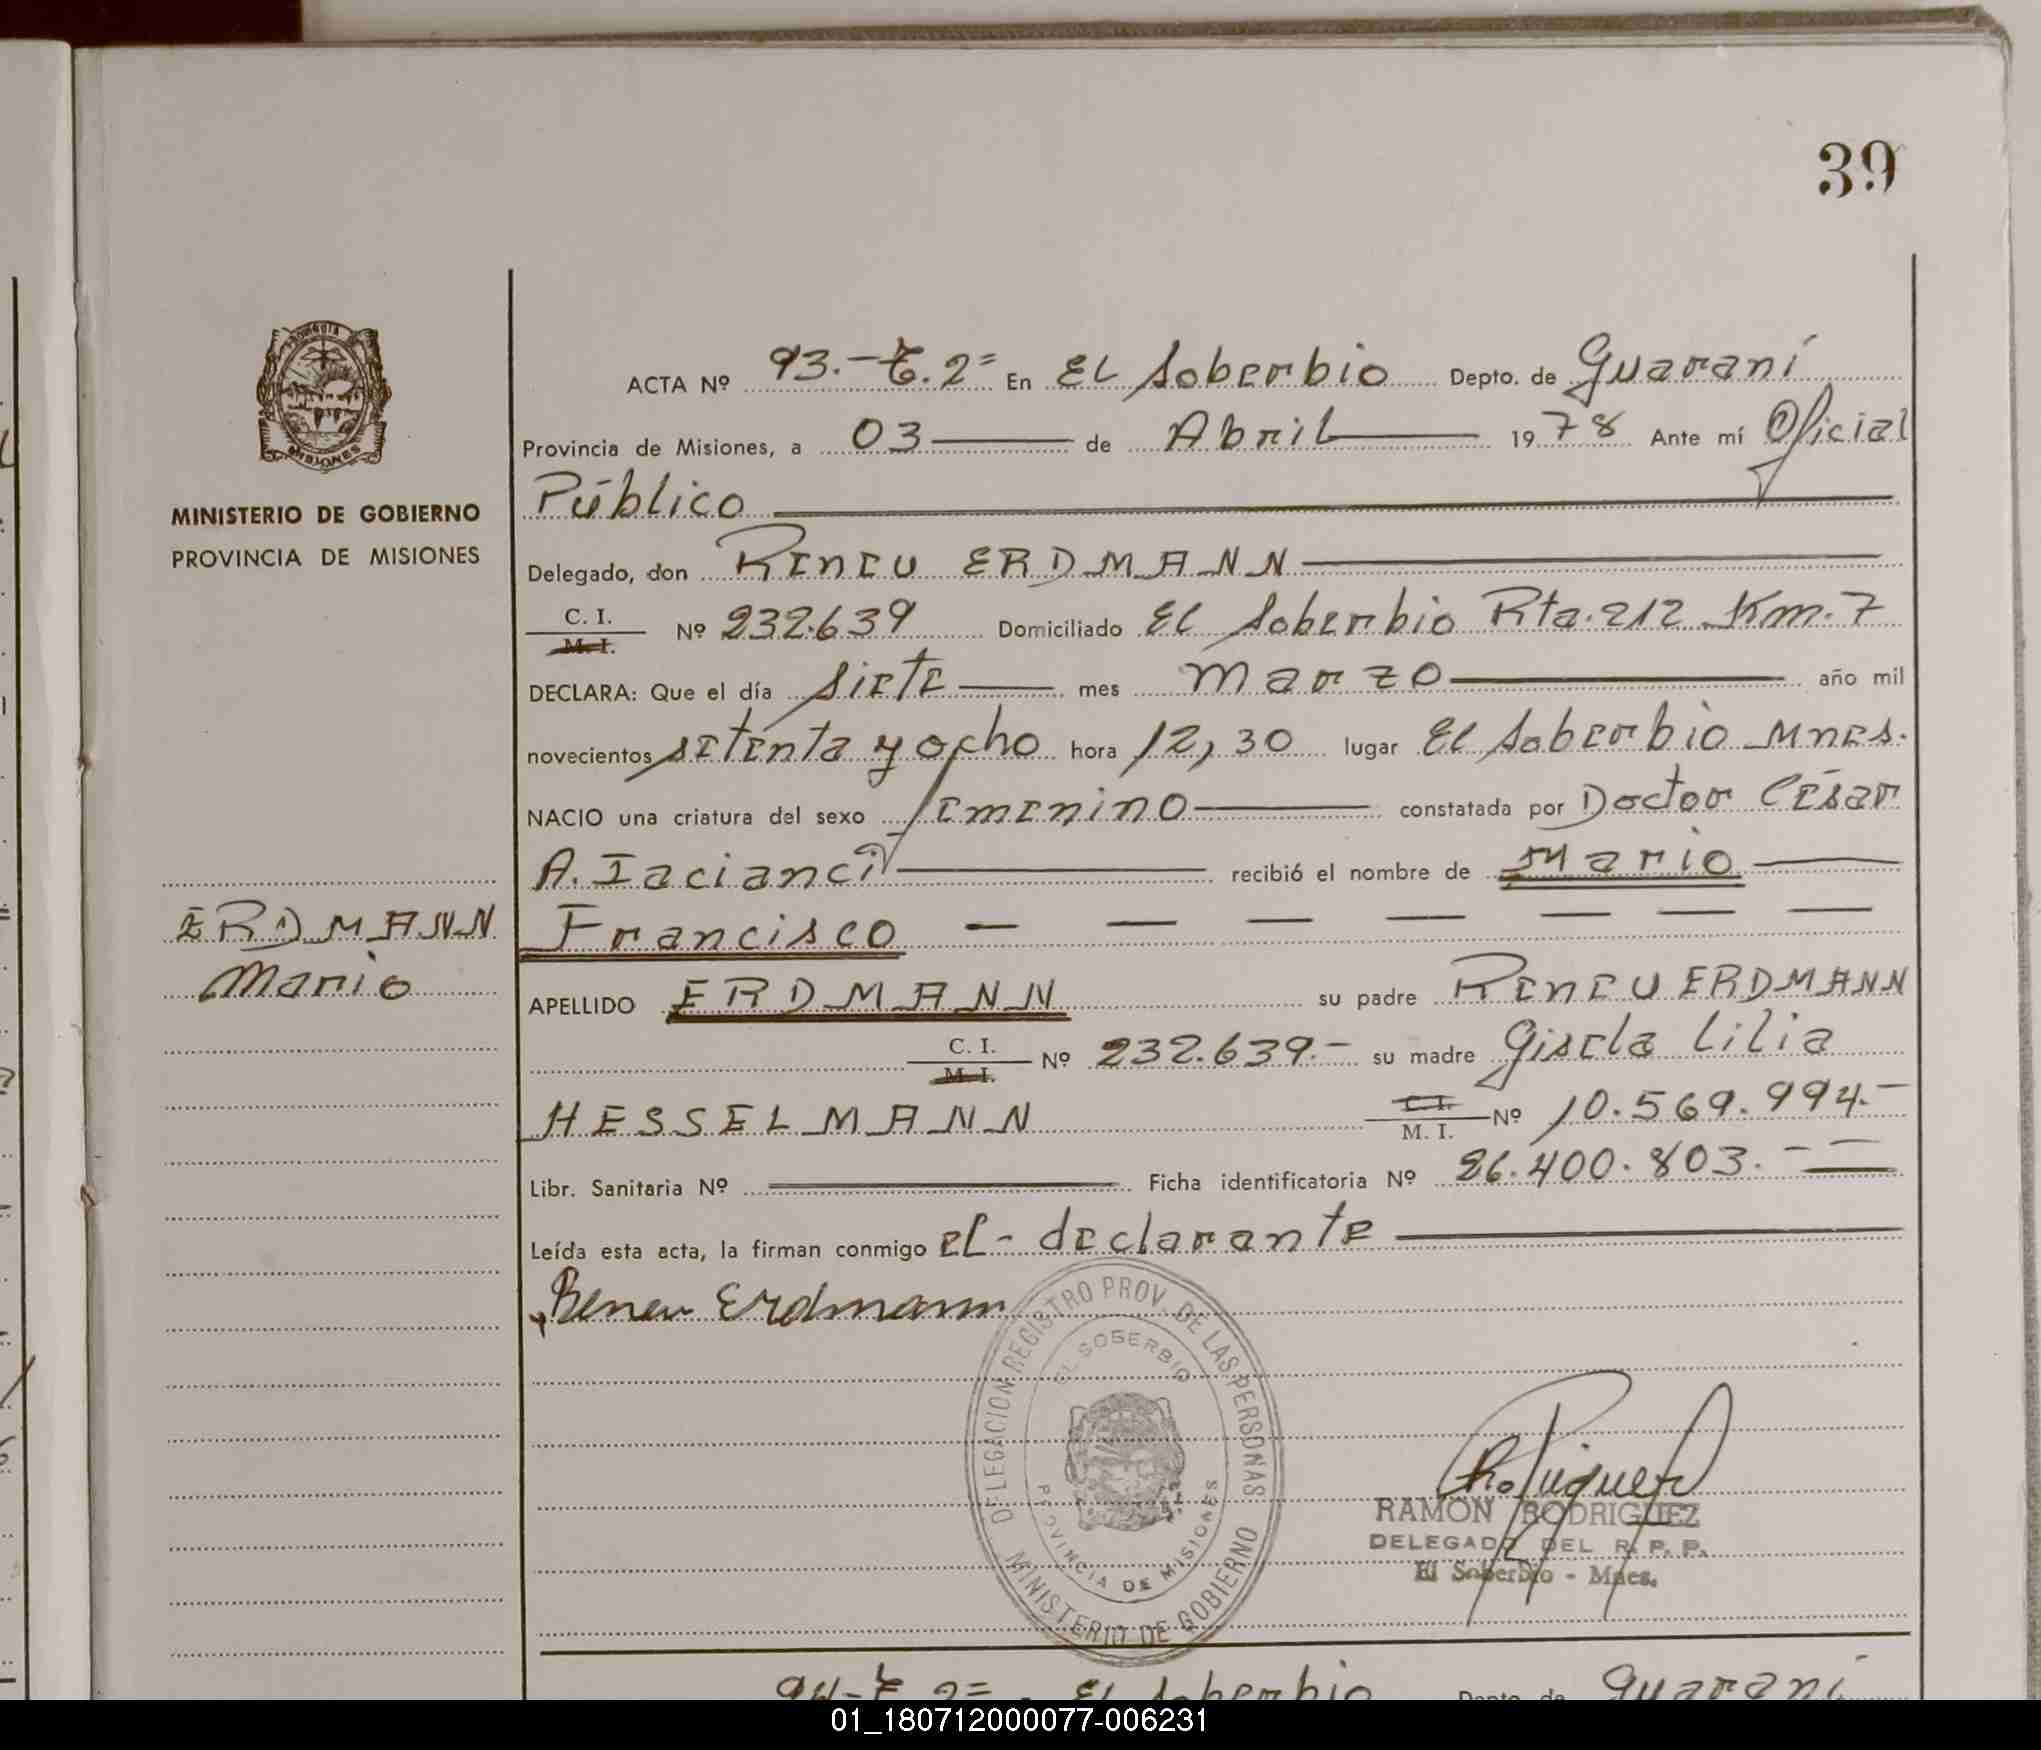 39
ACTA Nº 93.- T. 2º En El Soberbio Depto. de Guaraní
Provincia de Misiones, a 03 de Abril 1978 Ante mí Oficial
Público
MINISTERIO DE GOBIERNO
PROVINCIA DE MISIONES
Delegado, don Reneu ERDMANN
C. I.
M. I.
Nº 232.639 Domiciliado El Soberbio Rta. 212 Km. 7
DECLARA: Que el día siete mes marzo año mil
novecientos setenta y ocho hora 12,30 lugar El Soberbio Mnes.
NACIO una criatura del sexo femenino constatada por Doctor César
A. Iacianci recibió el nombre de Mario
Francisco
ERDMANN
Mario
APELLIDO ERDMANN su padre Reneu ERDMANN
C. I.
M. I.
Nº 232.639.- su madre Gisela Lilia
HESSELMANN C. I.
M. I.
Nº 10.569.994.-
Libr. Sanitaria Nº Ficha identificatoria Nº 26.400.803.-
Leída esta acta, la firman conmigo el - declarante
Reneu Erdmann
DELEGACION REGISTRO PROV. DE LAS PERSONAS
EL SOBERBIO
PROVINCIA DE MISIONES
MINISTERIO DE GOBIERNO
RAMON RODRIGUEZ
DELEGADO DEL R. P. P.
El Soberbio - Mnes.
94 - T. 2º El Soberbio Depto. de Guaraní
01_180712000077-006231